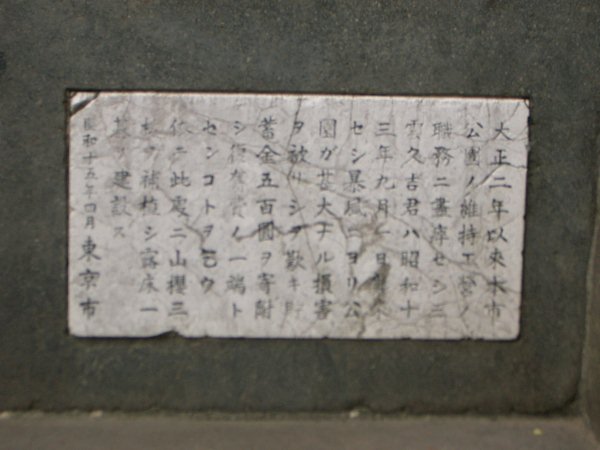 大正二年以來本市
公園ノ維持工營ノ
職務ニ盡瘁セシ三
雲久吉君ハ昭和十
三年九月一日襲来
セシ暴風ニヨリ公
園ガ甚大ナル損害
ヲ被リシヲ歎キ貯
蓄金五百圓ヲ寄附
シ復舊費ノ一端ト
センコトヲ乞ウ
依テ此處ニ山櫻三
株ヲ補植シ露床一
基ヲ建設ス
昭和十五年四月 東京市